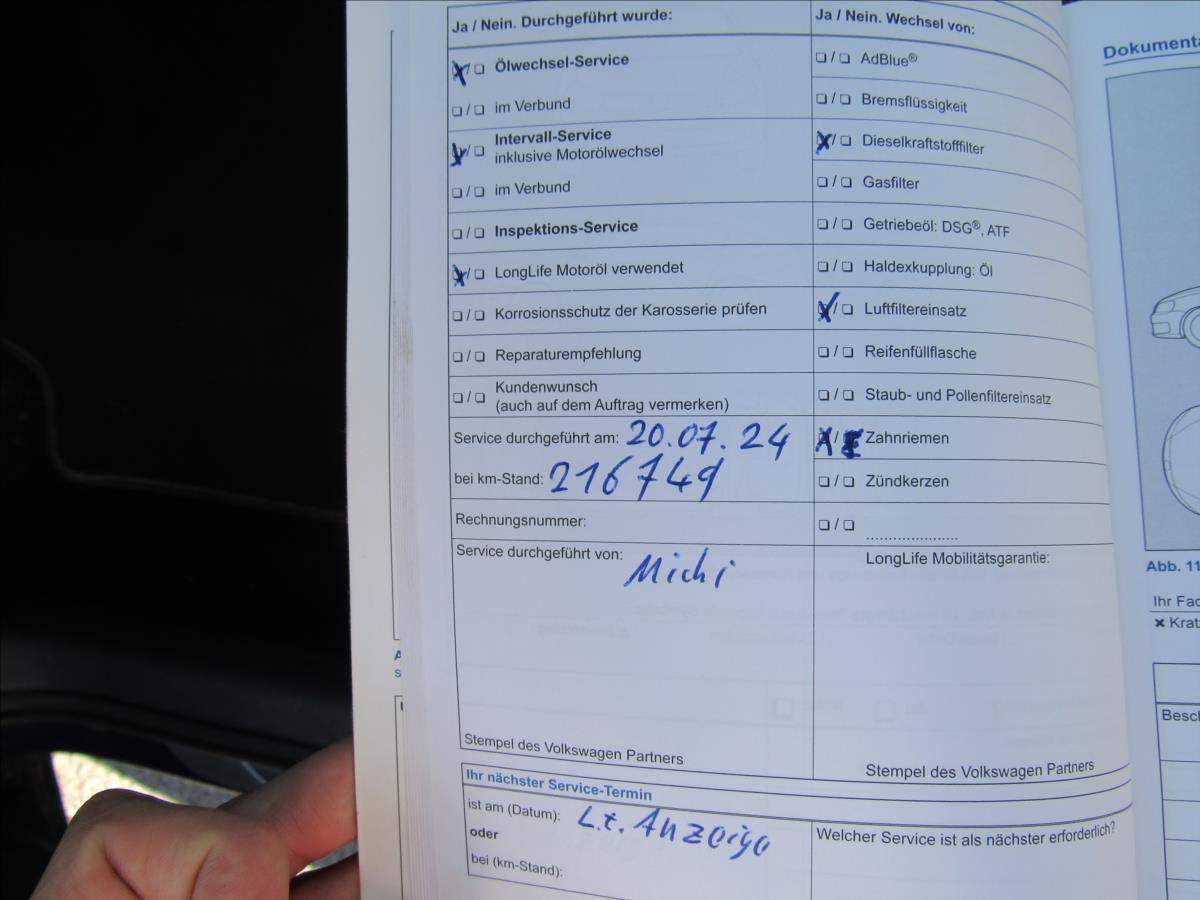 Ja / Nein. Durchgeführt wurde:
❏ / ❏ Ölwechsel-Service
❏ / ❏ im Verbund
❏ / ❏ Intervall-Service
inklusive Motorölwechsel
❏ / ❏ im Verbund
❏ / ❏ Inspektions-Service
❏ / ❏ LongLife Motoröl verwendet
❏ / ❏ Korrosionsschutz der Karosserie prüfen
❏ / ❏ Reparaturempfehlung
❏ / ❏ Kundenwunsch
(auch auf dem Auftrag vermerken)
Service durchgeführt am: 20.07.24
bei km-Stand: 216749
Rechnungsnummer:
Service durchgeführt von: Michi
Stempel des Volkswagen Partners
Ja / Nein. Wechsel von:
❏ / ❏ AdBlue®
❏ / ❏ Bremsflüssigkeit
❏ / ❏ Dieselkraftstofffilter
❏ / ❏ Gasfilter
❏ / ❏ Getriebeöl: DSG®, ATF
❏ / ❏ Haldexkupplung: Öl
❏ / ❏ Luftfiltereinsatz
❏ / ❏ Reifenfüllflasche
❏ / ❏ Staub- und Pollenfiltereinsatz
❏ / ❏ Zahnriemen
❏ / ❏ Zündkerzen
❏ / ❏ .....................
LongLife Mobilitätsgarantie:
Stempel des Volkswagen Partners
Ihr nächster Service-Termin
ist am (Datum): L.t. Anzeige
oder
bei (km-Stand):
Welcher Service ist als nächster erforderlich?
Dokumenta
Abb. 11
Ihr Fac
✖ Krat
Besch